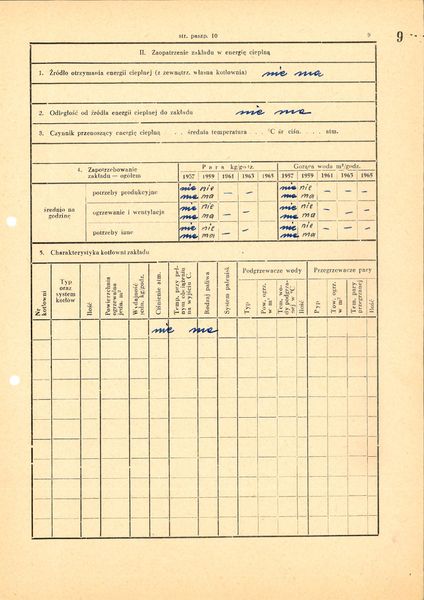 str. paszp. 10
9
9
II. Zaopatrzenie zakładu w energię cieplną
1. Źródło otrzymania energii cieplnej (z zewnątrz. własna kotłownia) nie ma
2. Odległość od źródła energii cieplnej do zakładu nie ma
3. Czynnik przenoszący energię cieplną . . . średnia temperatura . . . °C śr ciśn. . . . . atm.
4. Zapotrzebowanie zakładu — ogółem
Para kg/godz.
Gorąca woda m³/godz.
1957 1959 1961 1963 1965 1957 1959 1961 1963 1965
średnio na godzinę
potrzeby produkcyjne nie ma nie ma — — nie ma nie ma — —
ogrzewanie i wentylacja nie ma nie ma — — nie ma nie ma — — —
potrzeby inne nie ma nie ma — — nie ma nie ma — — —
5. Charakterystyka kotłowni zakładu
Nr kotłowni
Typ oraz system kotłów
Ilość
Powierzchnia ogrzewalna jedn. m²
Wydajność jedn. kg/godz.
Ciśnienie atm.
Temp. przy pełnym obciążeniu na wyjściu C.
Rodzaj paliwa
System palenisk
Podgrzewacze wody
Typ
Pow. ogrz. w m²
Tem. wody podgrzanej w °C
Ilość
Przegrzewacze pary
Typ
Pow. ogrz. w m²
Tem. pary przegrzanej
Ilość
nie ma